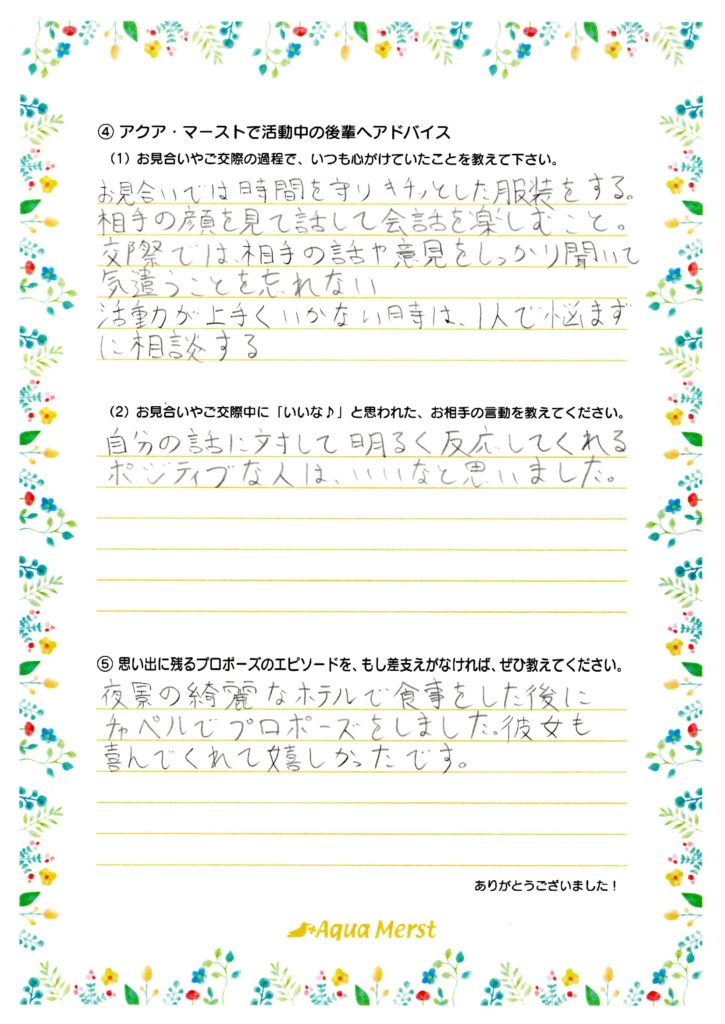 ④ アクア・マーストで活動中の後輩へアドバイス
（1）お見合いやご交際の過程で、いつも心がけていたことを教えて下さい。
お見合いでは時間を守りキチッとした服装をする。
相手の顔を見て話して会話を楽しむこと。
交際では、相手の話や意見をしっかり聞いて
気遣うことを忘れない
活動が上手くいかない時は、1人で悩まず
に相談する
（2）お見合いやご交際中に「いいな♪」と思われた、お相手の言動を教えてください。
自分の話に対して明るく反応してくれる
ポジティブな人は、いいなと思いました。
⑤ 思い出に残るプロポーズのエピソードを、もし差支えがなければ、ぜひ教えてください。
夜景の綺麗なホテルで食事をした後に
チャペルでプロポーズをしました。彼女も
喜んでくれて嬉しかったです。
ありがとうございました！
Aqua Merst